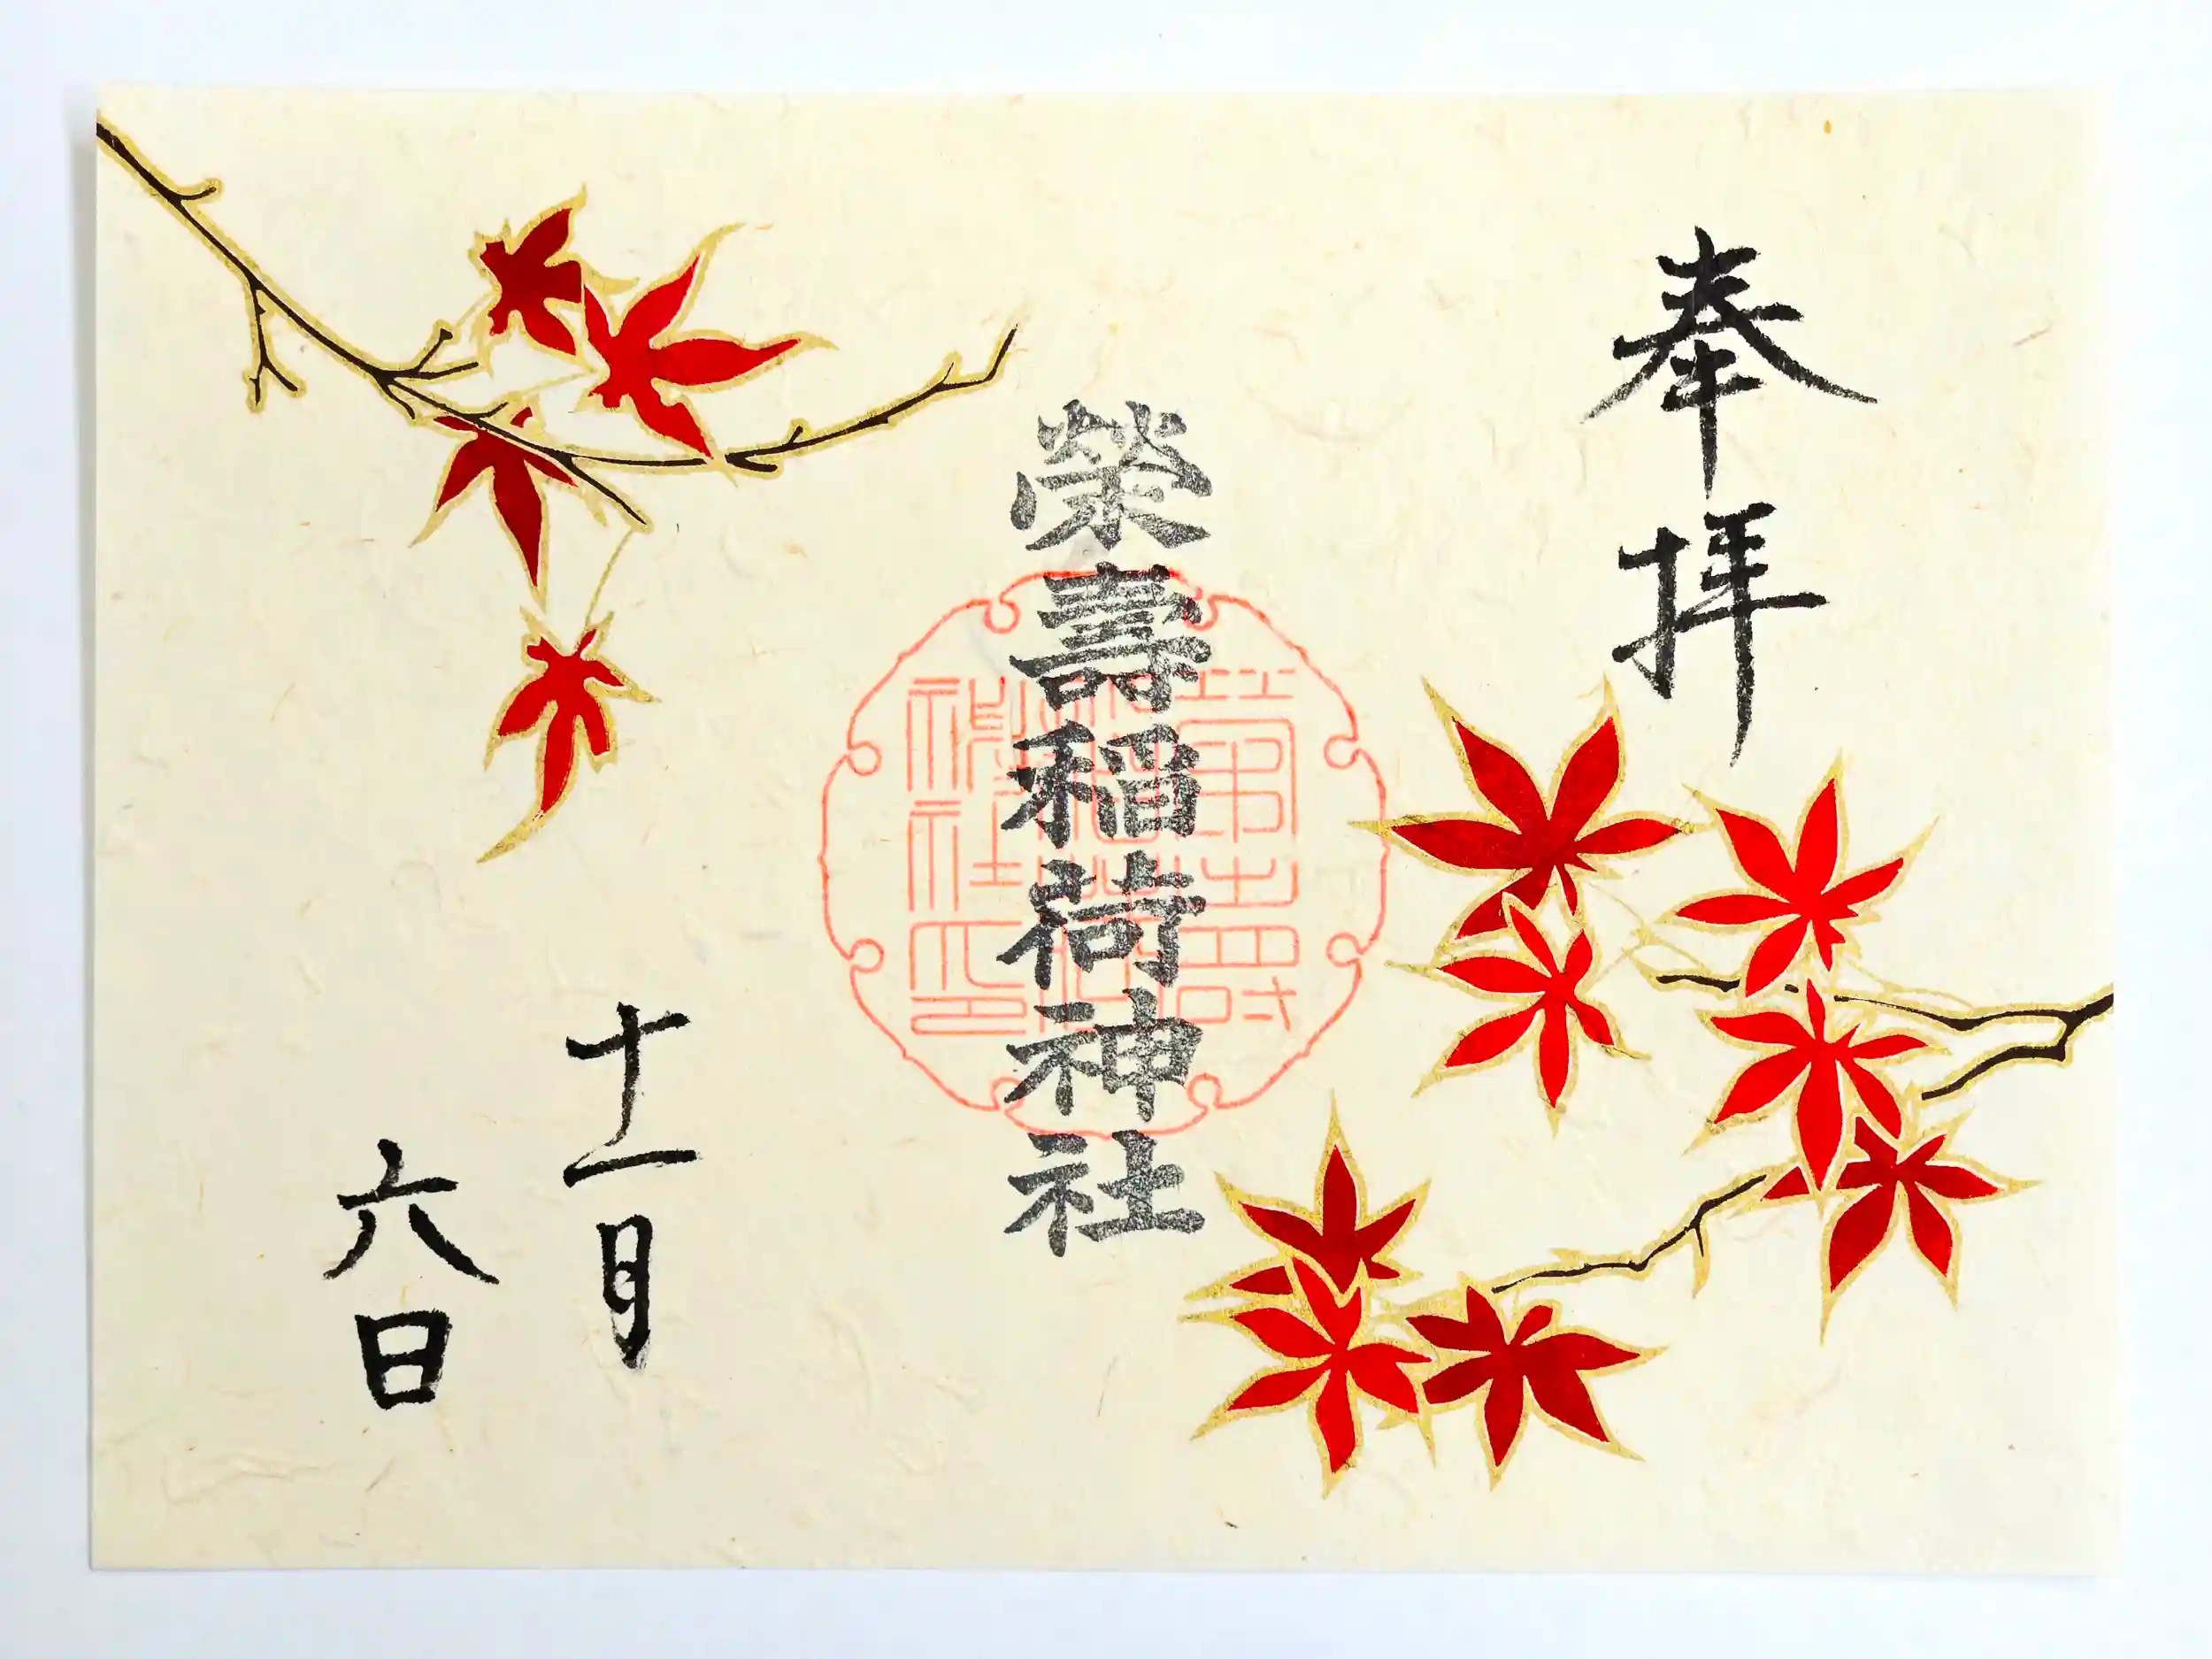 奉拝
榮壽稲荷神社
十一月
六日